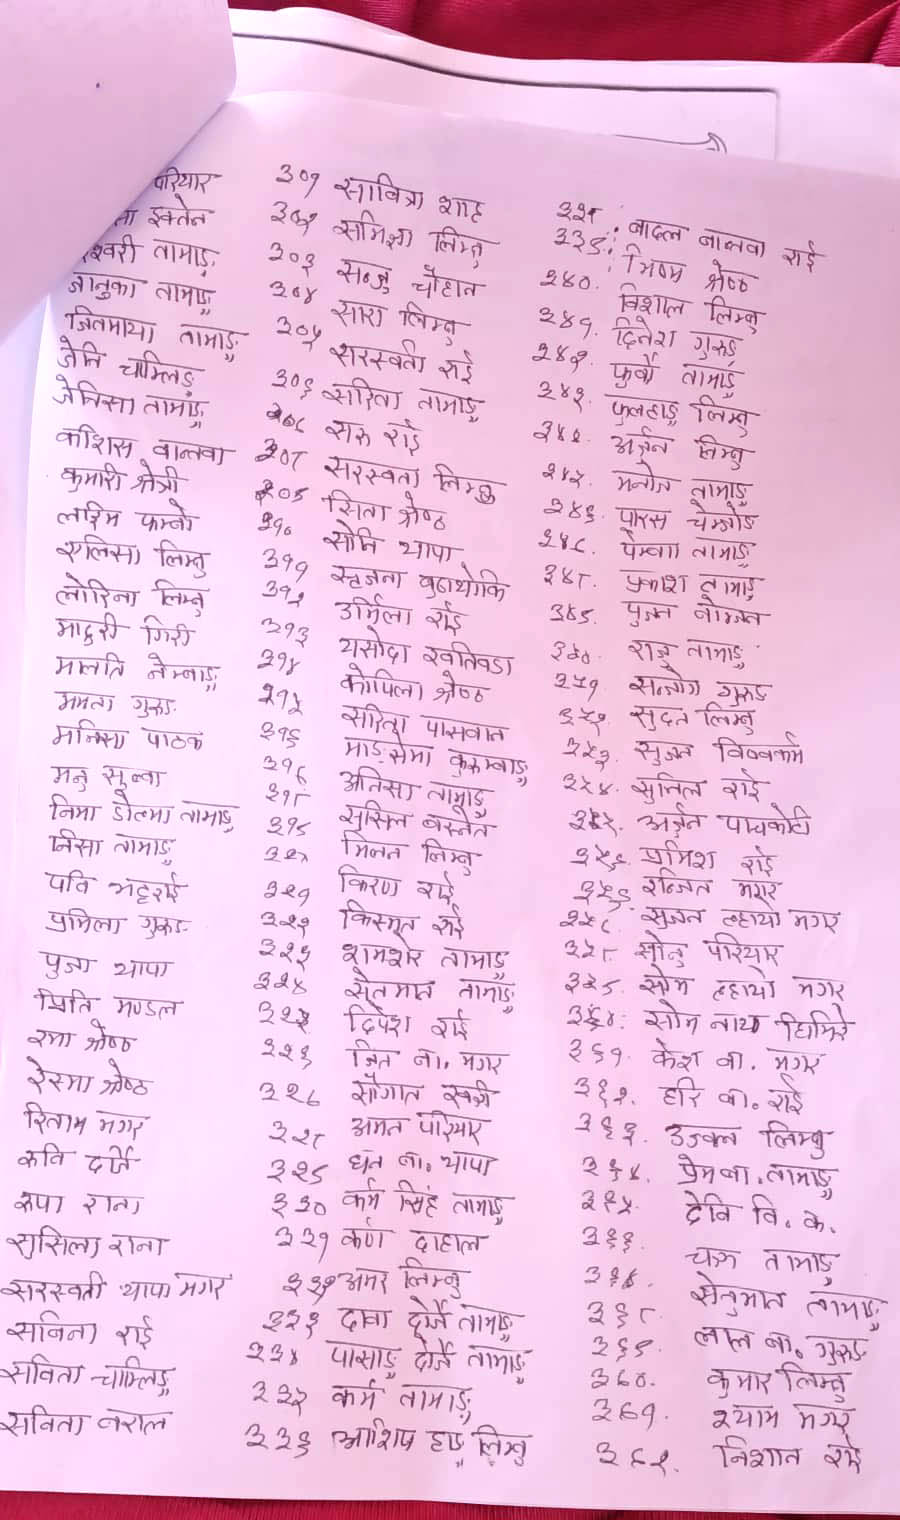 परियार
इक्तेन
श्वरी तामाङ
जानुका तामाङ
जितमाया तामाङ
जेनि चाम्लिङ
जेनिसा तामाङ
काशिस वान्तवा
कुमारी श्रेत्री
लक्ष्मि फम्बो
एलिसा लिम्बु
लोरिना लिम्बु
माधुरी गिरी
मालति नेम्बाङ
ममता गुरुङ
मनिसा पाठक
मनु सुब्वा
निमा डोल्मा तामाङ
निसा तामाङ
पवि भट्टराई
प्रमिला गुरुङ
पुजा थापा
प्रिति मण्डल
रमा श्रेष्ठ
रेस्मा श्रेष्ठ
रिताम मगर
रुवि दोर्जे
रुपा राना
सुसिला राना
सरस्वती थापा मगर
सविना राई
सविता चाम्लिङ
सविता बराल
३०१ सावित्रा शाह
३०२ समिक्षा लिम्बु
३०३ सन्जु चौहान
३०४ सारा लिम्बु
३०५ सरस्वती राई
३०६ सरिता तामाङ
३०७ सरु राई
३०८ सरस्वता लिम्बु
३०९ सिता श्रेष्ठ
३१० सोनि थापा
३११ सृजना बुढाथोकि
३१२ उर्मिला राई
३१३ यसोदा खतिवडा
३१४ कोपिला श्रेष्ठ
३१५ सरिता पासवान
३१६ माङसेमा कुरुम्बाङ
३१७ अनिसा तामाङ
३१८ सुसिल बस्नेत
३१९ मिलन लिम्बु
३२० किरण राई
३२१ किस्मत राई
३२२ शमशेर तामाङ
३२३ सेतमान तामाङ
३२४ दिपेश राई
३२५ जित ब. मगर
३२६ सौगात खत्री
३२७ अमन परियार
३२८ धन ब. थापा
३२९ कर्म सिंह तामाङ
३३० कर्ण दाहाल
३३१ अमर लिम्बु
३३२ दावा दोर्जे तामाङ
३३३ पासाङ दोर्जे तामाङ
३३४ कर्म तामाङ
३३५ आशिष हाङ लिम्बु
३३६
बादल बान्तवा राई
भिष्म श्रेष्ठ
३४०. विशाल लिम्बु
३४१. दिनेश गुरुङ
३४२. फुर्वा तामाङ
३४३. फुलहाङ लिम्बु
३४४. अर्जुन लिम्बु
३४५. मनोज तामाङ
३४६. पारस चेम्जोङ
३४७. पेम्बा तामाङ
३४८. प्रकाश तामाङ
३४९. पुजन बोम्जन
३५०. राजु तामाङ
३५१. सन्तोग गुरुङ
३५२. सुदन लिम्बु
३५३. सुजन विश्वकर्मा
३५४. सुनिल राई
३५५. अर्जुन पाचकोटी
३५६. प्रमिश राई
रन्जित मगर
३५७. सुजन ल्हायो मगर
३५८. सोनु परियार
३५९. सोम ल्हायो मगर
३६०. सोम नाथ घिमिरे
३६१. केश ब. मगर
३६२. हरि ब. राई
३६३. उज्वल लिम्बु
३६४. प्रेम ब. तामाङ
३६५. देवि वि. क.
३६६. चक्र तामाङ
३६७. सेतुमान तामाङ
३६८. लाल ब. गुरुङ
३६९. कुमार लिम्बु
३७०. श्याम मगर
३७१. निशान राई
३७२.